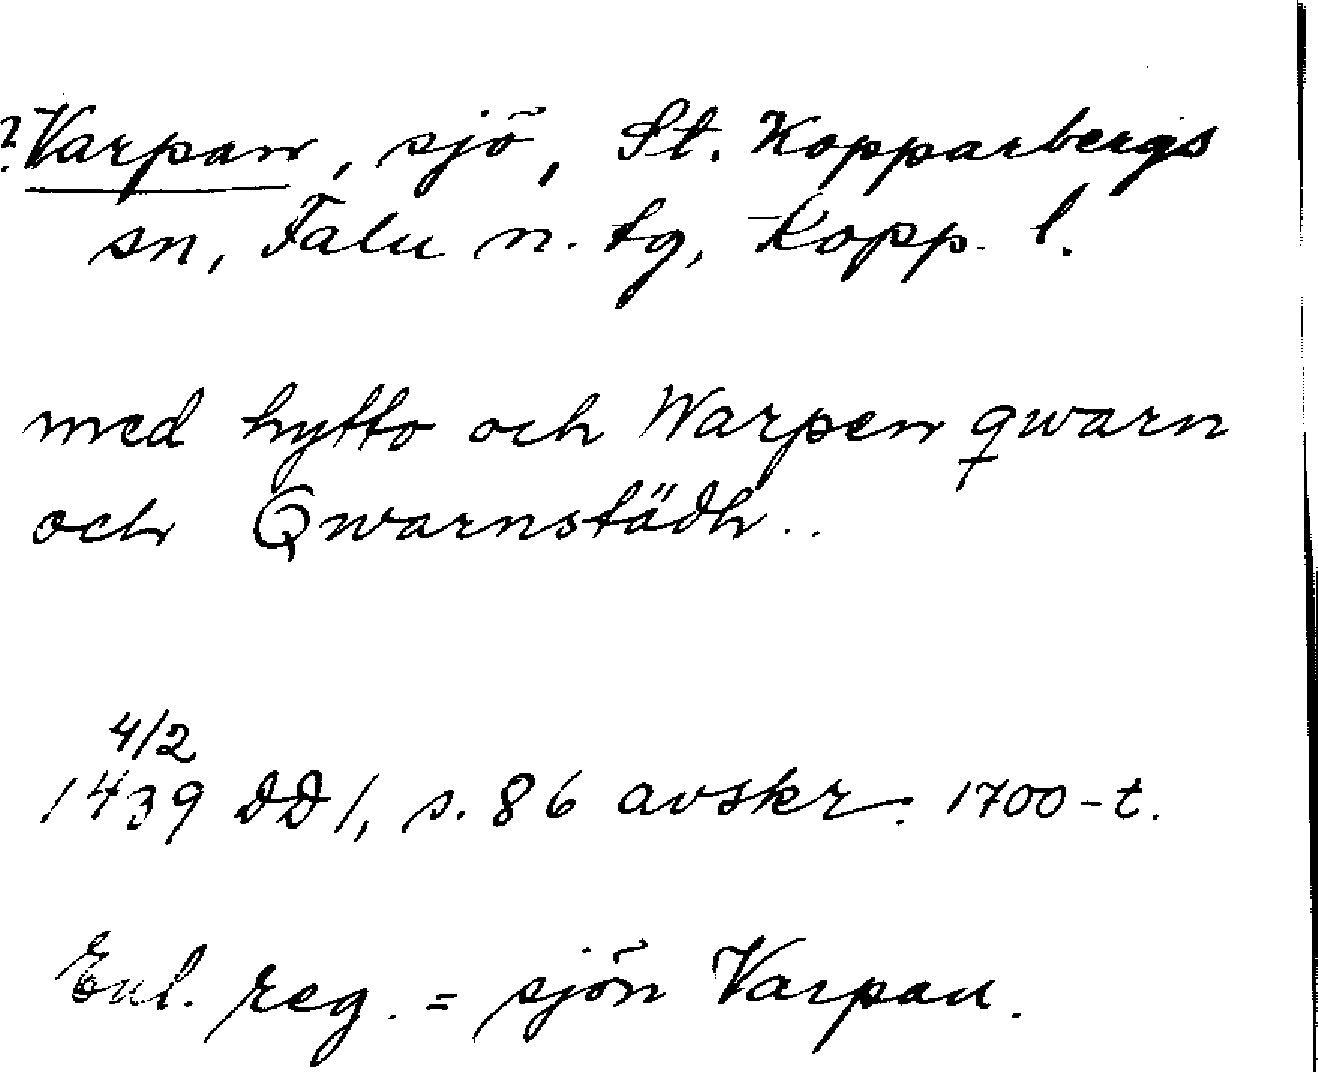 ?Varpan, sjö, St. Kopparbergs
sn, Falu n. tg, Kopp. l.
med hytto och Warpen qwarn
och Qwarnstädh..
4/2
1439 DD 1, s. 86 avskr. 1700-t.
Enl. reg. = sjön Varpan.